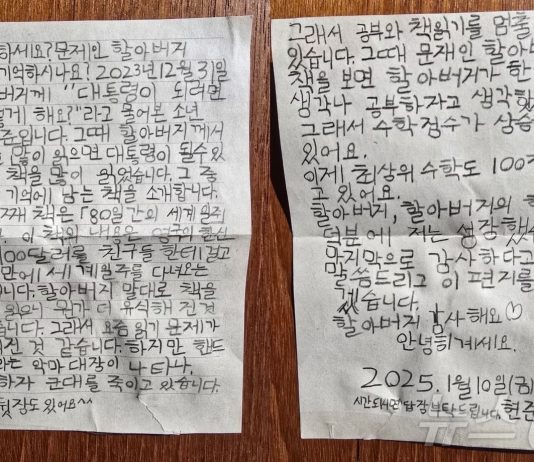 하세요? 문제인 할아버지
기억하시나요? 2023년12월31일
버지께 "대통령이 되려면
게 해요?"라고 물어본 소년
준입니다. 그때 할아버지께서
많이 읽으면 대통령이 될수있
책을 많이 읽었습니다. 그 중
기억에 남는 책을 소개합니다.
째 책은 「80일간의 세계 일주
이 책의 내용은 영국의 신
100달러를 친구들 한테 걸고
만에 세계일주를 다녀오는
니다. 할아버지 말대로 책을
읽으니 뭔가 더 유식해 진것
습니다. 그래서 요즘 읽기 문제가
진 것 같습니다. 하지만 핸드
라는 악마 대장이 나타나
하자 군대를 죽이고 있습니다.
뒷장도 있어요^^
그래서 공부와 책읽기를 멈출
있습니다. 그때 문재인 할아버
책을 보면 할아버지가 한
생각나 공부하자고 생각
그래서 수학점수가 상승
있어요.
이제 최상위 수학도 100
고 있어요.
할아버지, 할아버지의
덕분에 저는 성장했
마지막으로 감사하다고
말씀드리고 이 편지를
겠습니다.
할아버지 감사해요♡
안녕히계세요.
2025.1월10일(금)
시간되시면 답장부탁드립니다. 현준